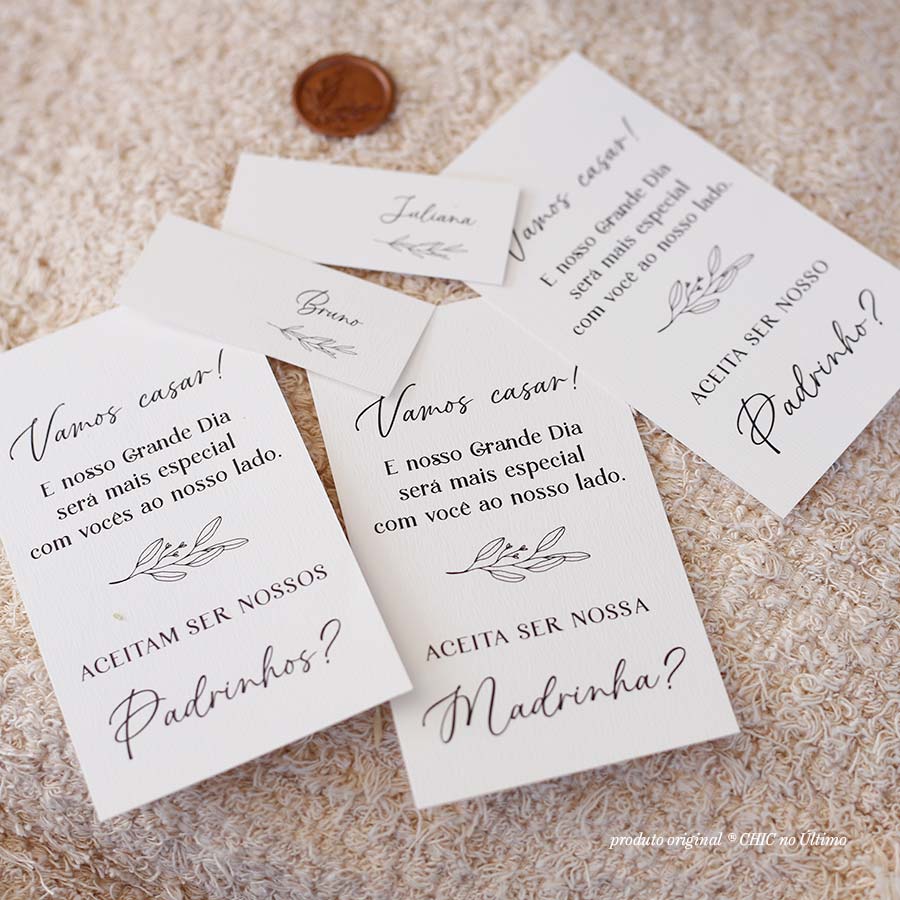 Juliana
Bruno
Vamos casar!
E nosso Grande Dia
será mais especial
com vocês ao nosso lado.
ACEITAM SER NOSSOS
Padrinhos?
Vamos casar!
E nosso Grande Dia
será mais especial
com você ao nosso lado.
ACEITA SER NOSSA
Madrinha?
Vamos casar!
E nosso Grande Dia
será mais especial
com você ao nosso lado.
ACEITA SER NOSSO
Padrinho?
produto original ® CHIC no Último